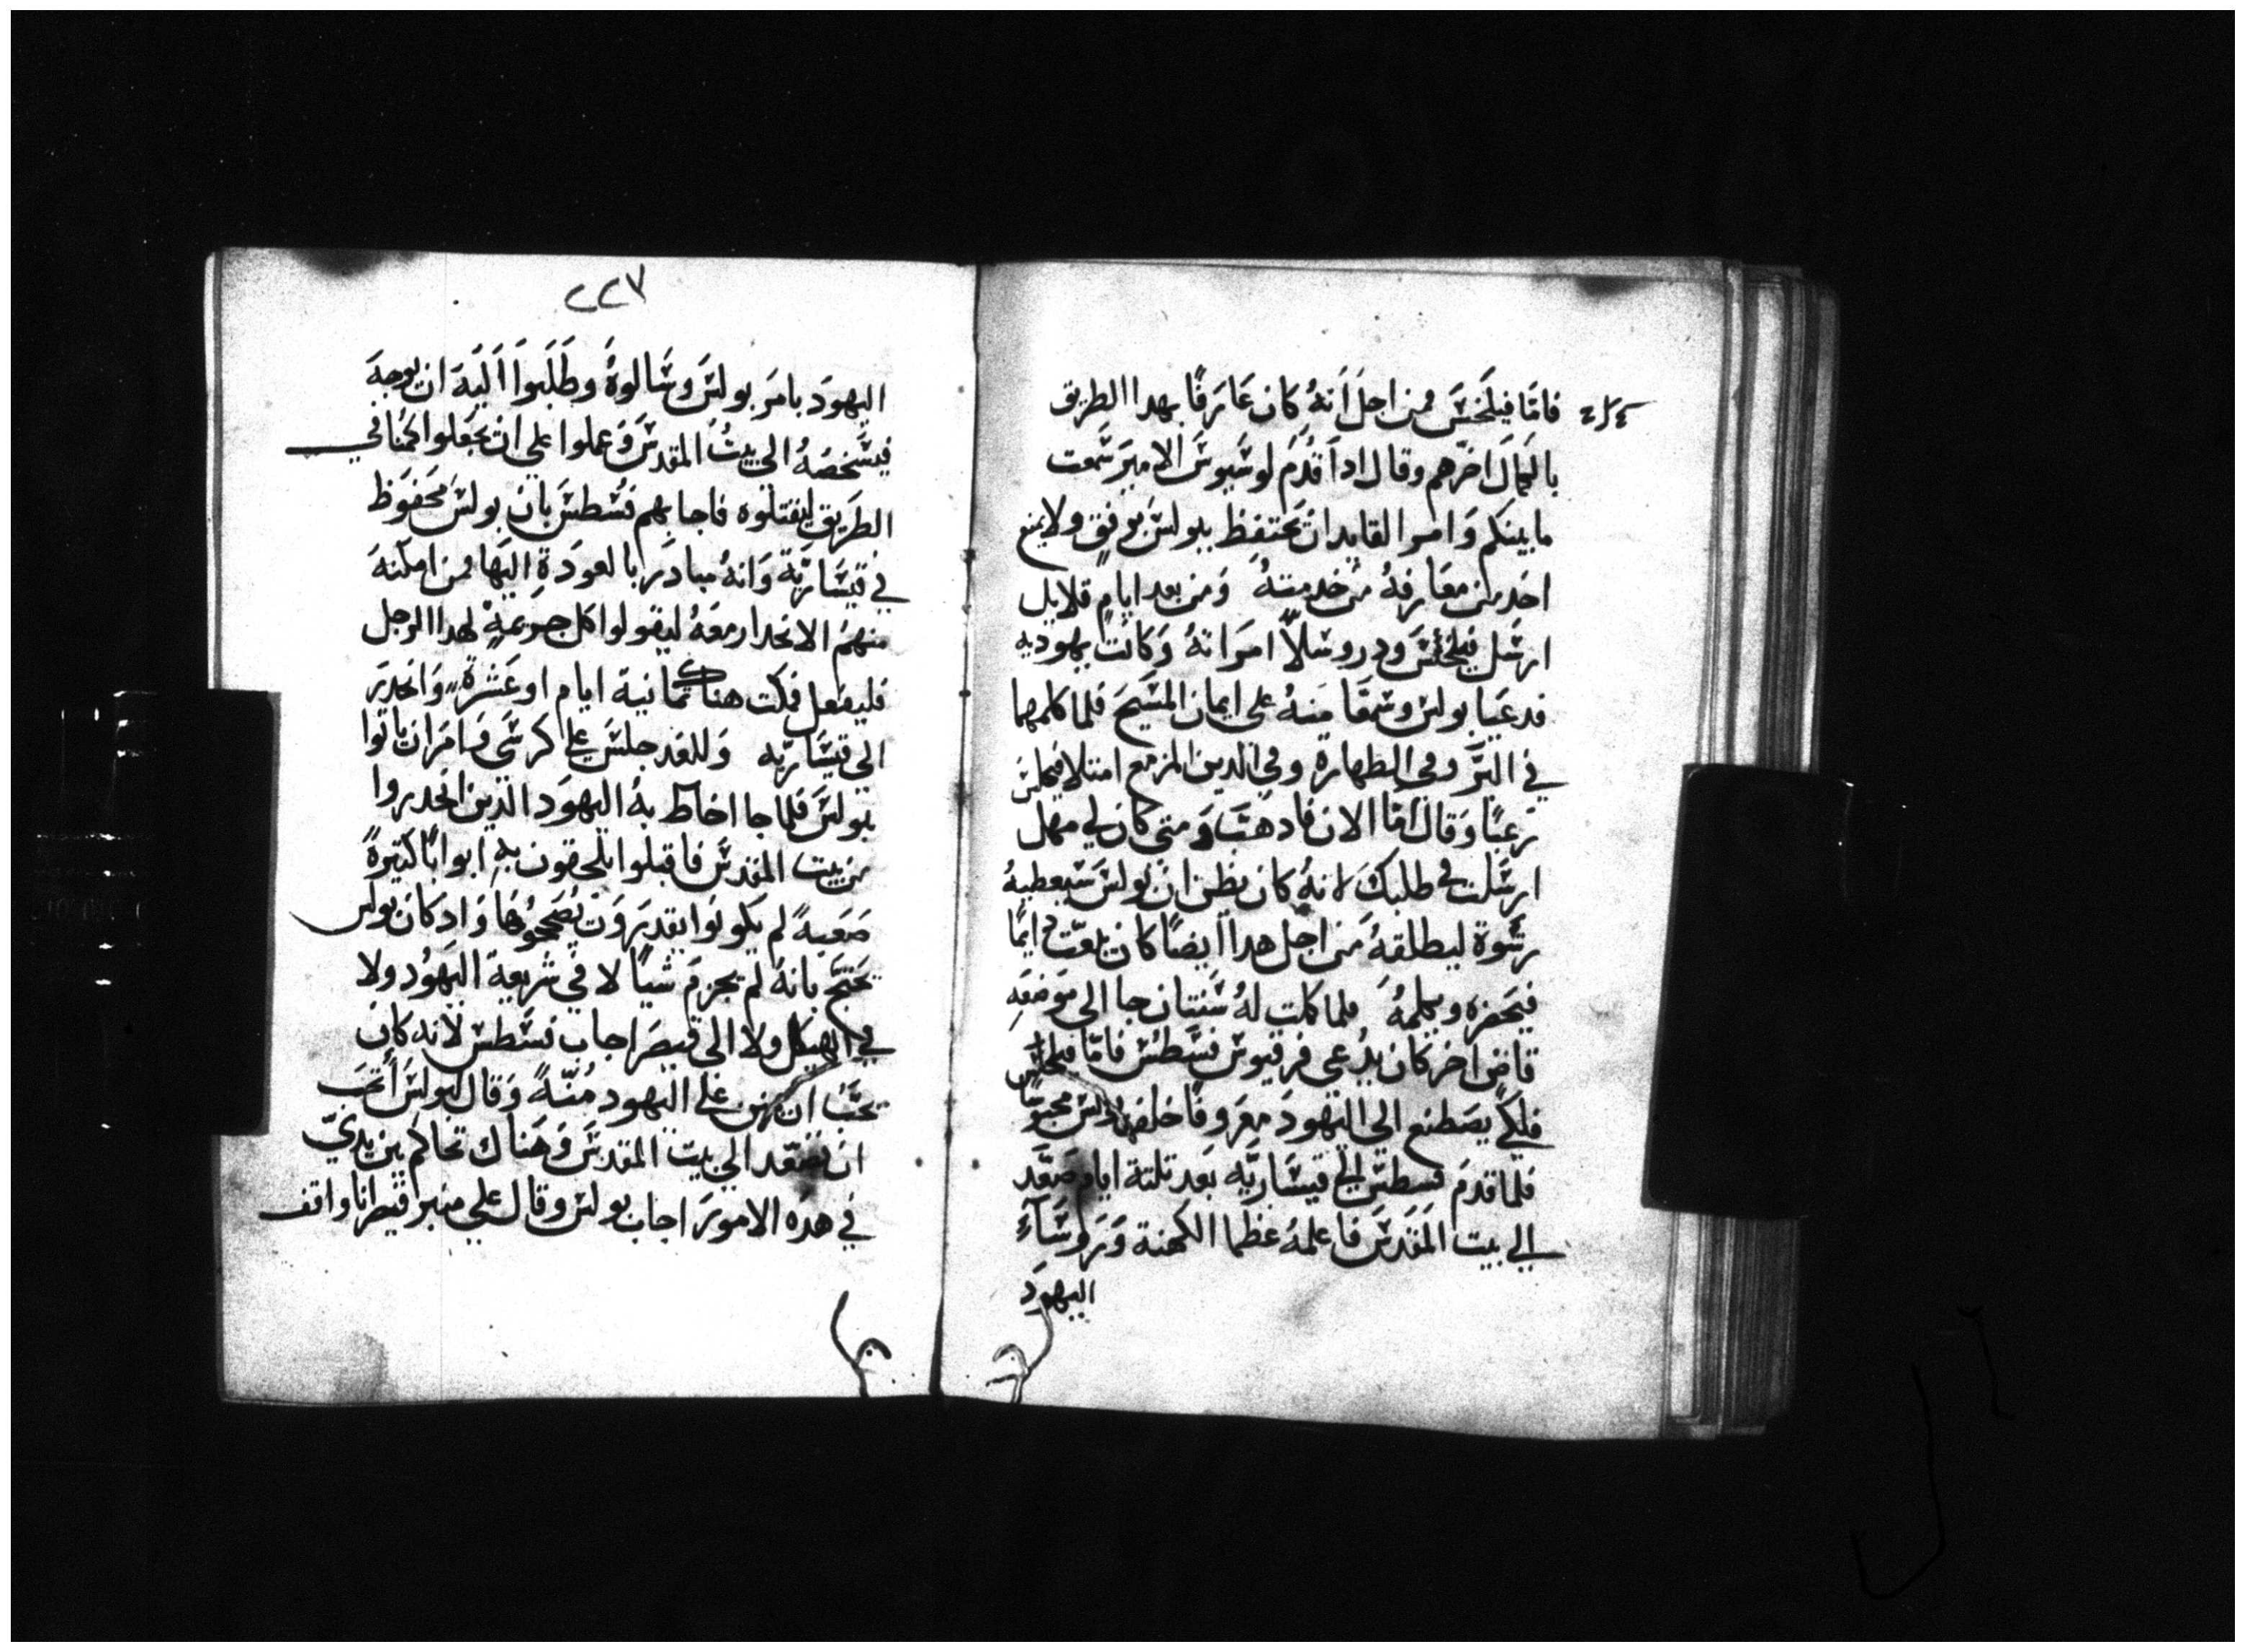 فامَا فيلَخسَ فمن اجلَ اَنهُ كان عَارَفًا بهدا الطريق
بالكمالَ اخرّهم وقال اداَ قدُمَ لوسَيوسَ الاميرَ سَمعت
ما بينكم وَامر القايدان يَحتفظ ببولسَ بوفقٍ ولا يمنع
احَد من معَارفهُ من خدمتهُ وَمن بعد ايامٍ قلايل
ارسَل فيلخسَ ودروسَلاّ امرَاتهُ وَكانت يهوديه
فدعَيا بولسَ وسَمعَا مَنهُ على ايمان المسَيحَ فلما كلمهما
في البرَّ وفي الطهارة وفي الدين المزمع امتلا فيلخس
رَعبًا وَقال امّا الان فادهبَ وَمتى كان لي مهل
ارسَلت في طلبكَ لانهُ كان يظن ان بولسَ سَيعطيهُ
رشَوة ليطلقهُ من اجل هدا ايضًا كان يبعَت دايمًا
فيحَضره ويكلمهُ فلما كملت لهُ سَنتان جا الى مَوضعَهِ
قاضٍ اخر كان يدُعى فرقيوس فسَطسُ فامّا فيلخس
فلكَي يصَطنع الى اليهودَ معَروفًا خلف بولس محبوسًا
فلما قدمَ فسطسَ الي قيسَاريّه بعَد تلتة ايام صَعَد
الي بيت المَقدسَ فاعلمهُ عظما الكهنة وَرَوسَآءِ
اليهودِ
٢٢٧
اليهودَ بامرَ بولسَ وسَالوهُ وطَلَبوا اَليَهَ ان يوجهَ
فيشَخصَهُ الي بيتُ المقدسَ وَعملوا على انْ يجَعلوا كمَنا في
الطرَيق ليقتلوه فاجابهم فسُطسَ بان بولسَ محَفوَظ
في قيسَاريَّة وَانهُ مبادرَ بالعودَةِ اليَها فمن امكنهَ
منهمُ الانحدار معَهُ ليقولوا كل جريمةٍ لهدا الرجل
فليفعل فمكت هناك تمانية ايام او عَشرةً وَانحدرَ
الى قيسَاريّه وَللغد جلسَ على كرسَى وَامَرَ ان ياتوا
ببولسَ فلما جا احاط بهُ اليهوَد الدّين انحدروا
من بيت المقدسَ فاقبلوا يلحقون بهِ ابوابًا كتيرةً
صَعَبهً لم يَكونوَا يقدرَوَنَ يُصَححُوهَا وَاد كان بولس
يحَتج بانهُ لم يجرمَ شياً لا فيَ شريعةَ اليَهوُد ولا
في الهيكل ولا الى قيصرَ اجاب فسَطس لانه كان
يحَبّ ان يمنن على اليهود مُنّةً وَقال لبولسَ اَتحبَ
ان تصَعَد الي بيت المقدسَ وَهَناك تحاكم بين يديَّ
في هدَه الامورَ اجاب بولسَ وقال على منبر قيصر انا واقف